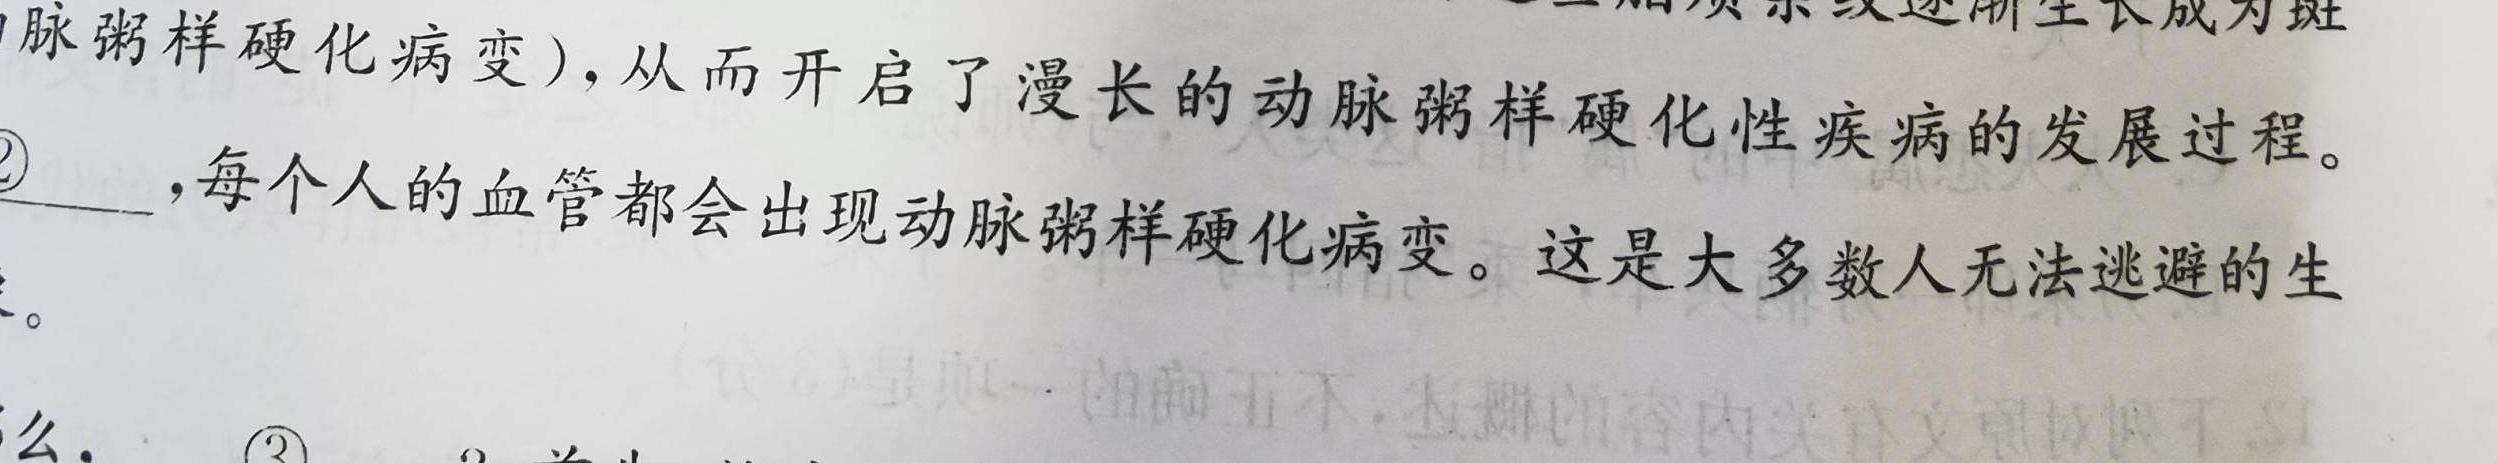 脂质条纹逐渐生长成为斑
脉粥样硬化病变),从而开启了漫长的动脉粥样硬化性疾病的发展过程。
②,每个人的血管都会出现动脉粥样硬化病变。这是大多数人无法逃避的生
。
么, ③ ?